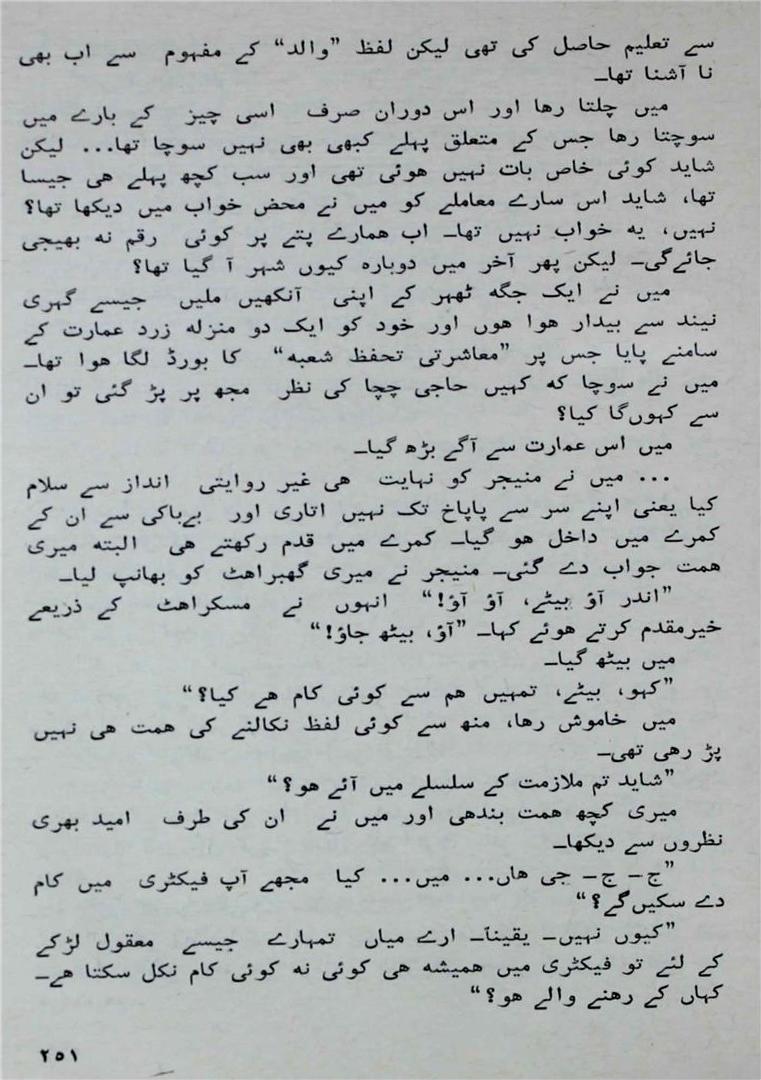 سے تعلیم حاصل کی تھی لیکن لفظ ”والد“ کے مفہوم سے اب بھی
نا آشنا تھا۔
میں چلتا رھا اور اس دوران صرف اسی چیز کے بارے میں
سوچتا رھا جس کے متعلق پہلے کبھی بھی نہیں سوچا تھا... لیکن
شاید کوئی خاص بات نہیں ھوئی تھی اور سب کچھ پہلے ھی جیسا
تھا، شاید اس سارے معاملے کو میں نے محض خواب میں دیکھا تھا؟
نہیں، یہ خواب نہیں تھا۔ اب ھمارے پتے پر کوئی رقم نہ بھیجی
جائےگی۔ لیکن پھر آخر میں دوبارہ کیوں شہر آ گیا تھا؟
میں نے ایک جگہ ٹھہر کے اپنی آنکھیں ملیں جیسے گہری
نیند سے بیدار ھوا ھوں اور خود کو ایک دو منزلہ زرد عمارت کے
سامنے پایا جس پر ”معاشرتی تحفظ شعبہ“ کا بورڈ لگا ھوا تھا۔
میں نے سوچا کہ کہیں حاجی چچا کی نظر مجھ پر پڑ گئی تو ان
سے کہوںگا کیا؟
میں اس عمارت سے آگے بڑھ گیا۔
... میں نے منیجر کو نہایت ھی غیر روایتی انداز سے سلام
کیا یعنی اپنے سر سے پاپاخ تک نہیں اتاری اور بےباکی سے ان کے
کمرے میں داخل ھو گیا۔ کمرے میں قدم رکھتے ھی البتہ میری
ھمت جواب دے گئی۔ منیجر نے میری گھبراھٹ کو بھانپ لیا۔
”اندر آؤ بیٹے، آؤ آؤ!“ انہوں نے مسکراھٹ کے ذریعے
خیرمقدم کرتے ھوئے کہا۔ ”آؤ، بیٹھ جاؤ!“
میں بیٹھ گیا۔
”کہو، بیٹے، تمہیں ھم سے کوئی کام ھے کیا؟“
میں خاموش رھا، منھ سے کوئی لفظ نکالنے کی ھمت ھی نہیں
پڑ رھی تھی۔
”شاید تم ملازمت کے سلسلے میں آئے ھو؟“
میری کچھ ھمت بندھی اور میں نے ان کی طرف امید بھری
نظروں سے دیکھا۔
”ج۔ ج۔ جی ھاں... میں... کیا مجھے آپ فیکٹری میں کام
دے سکیںگے؟“
”کیوں نہیں۔ یقیناً۔ ارے میاں تمہارے جیسے معقول لڑکے
کے لئے تو فیکٹری میں ھمیشہ ھی کوئی نہ کوئی کام نکل سکتا ھے۔
کہاں کے رھنے والے ھو؟“
۲۵۱